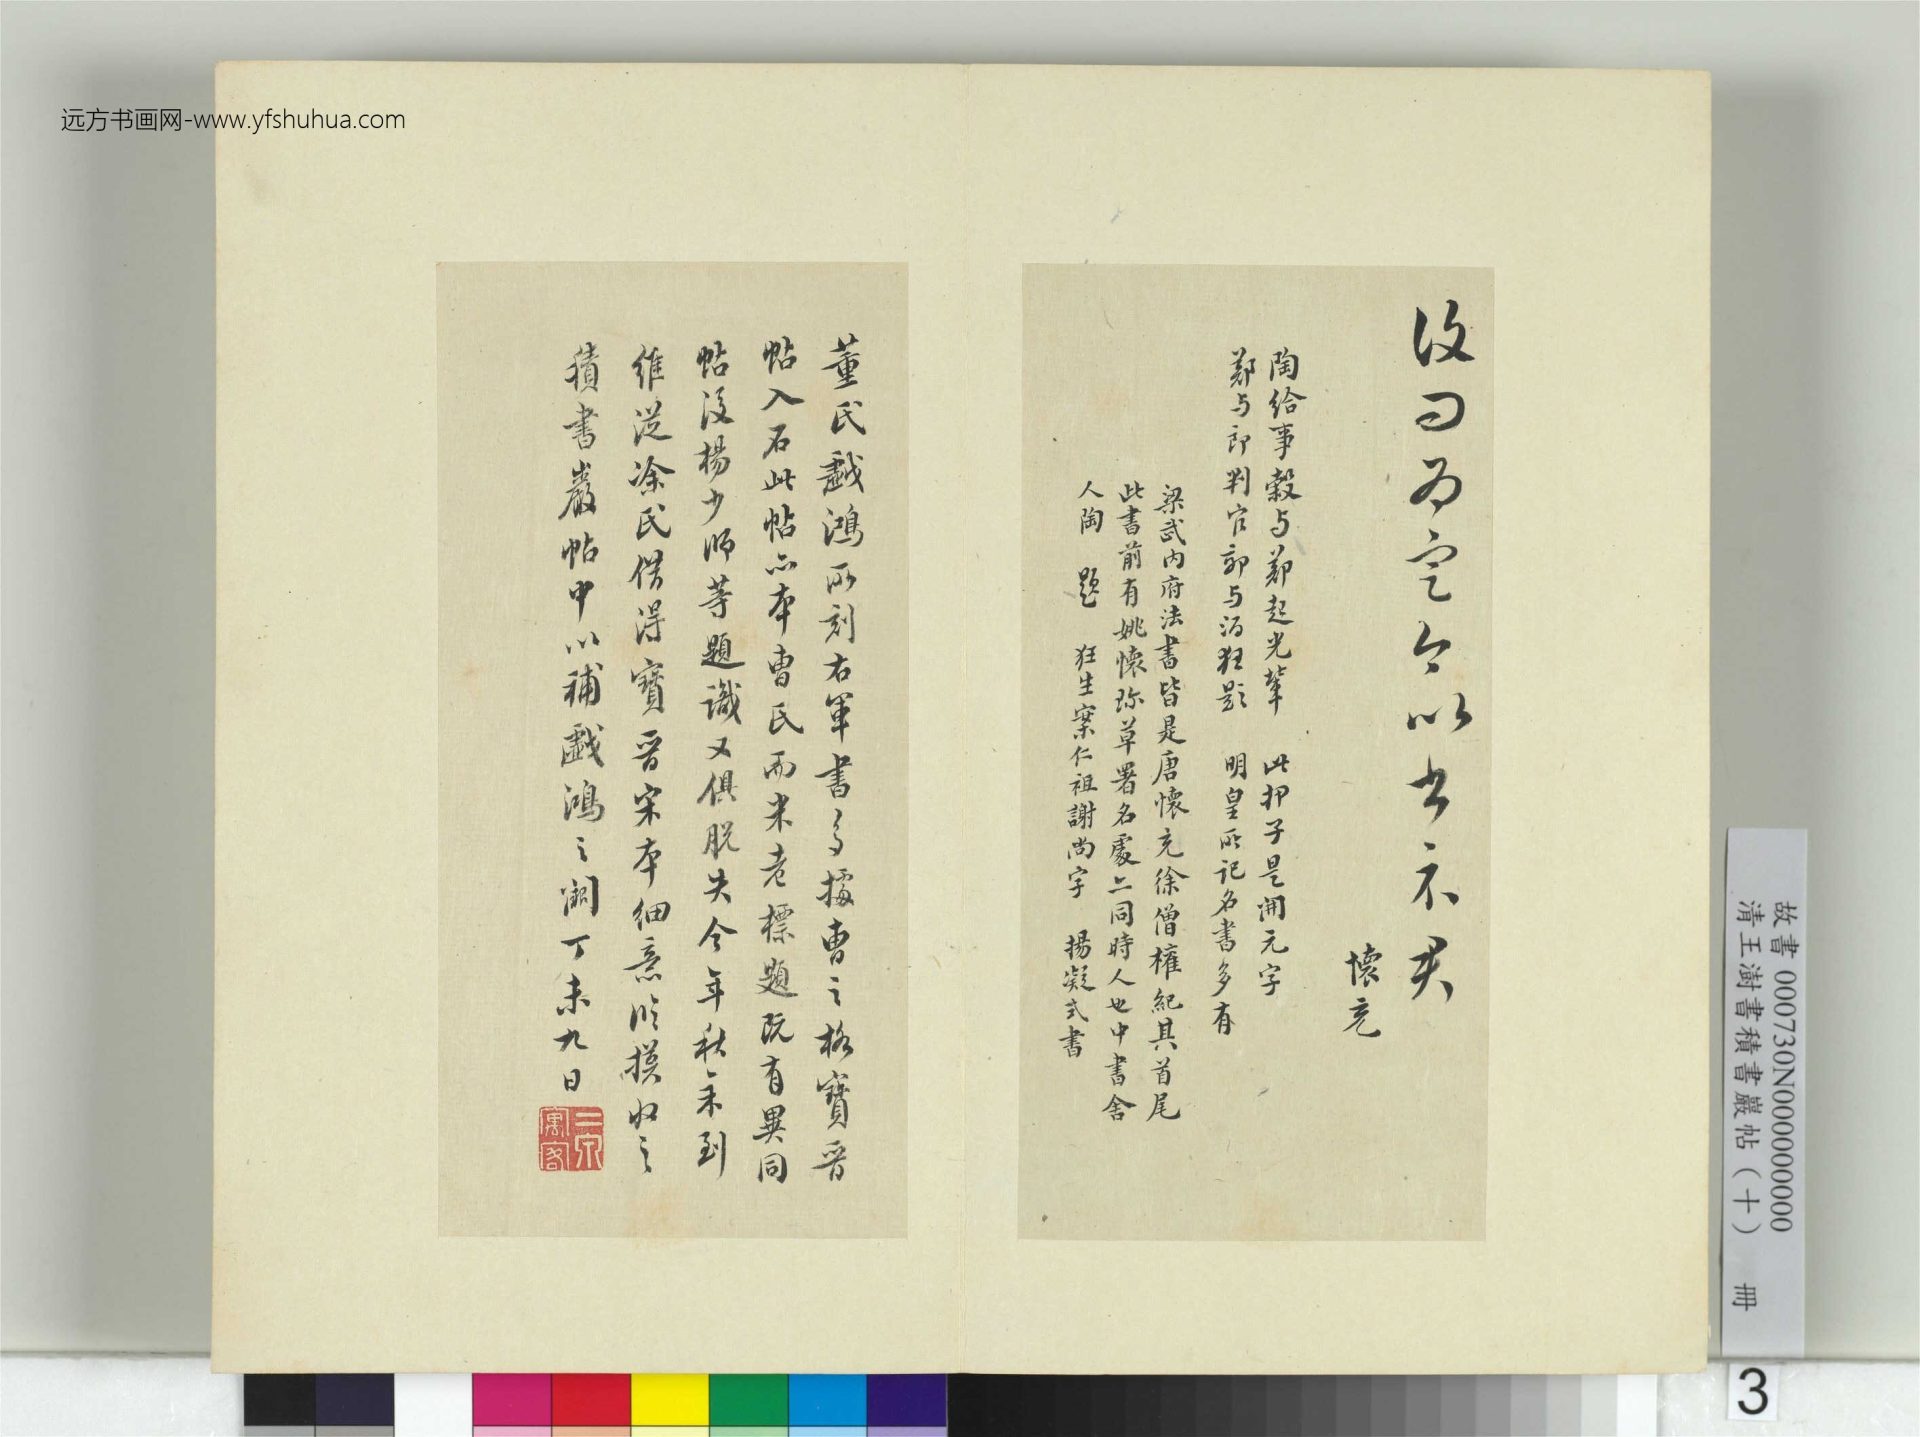 远方书画网-www.yfshuhua.com
汝曰為定 今以書不具
懷充
陶給事穀与鄭起光輩 此押子是開元字
鄭与郎判官郭与酒狂題 明皇所記名書多有
梁武內府法書皆是唐懷充徐僧權紀其首尾
此書前有姚懷珎草署名處亦同時人也中書舍
人陶 題 狂生案仁祖謝尚字 楊凝式書
董氏戲鴻所刻右軍書多據曹之格寶晉
帖入石此帖亦本曹氏而米老標題既有異同
帖後楊少師等題識又俱脫失今年秋余到
維從涂氏借得寶晉宋本細意臨摸收之
積書巖帖中以補戲鴻之闕丁未九日
二泉寓客
故書 000730N000000000
清王澍書積書巖帖（十） 冊
3